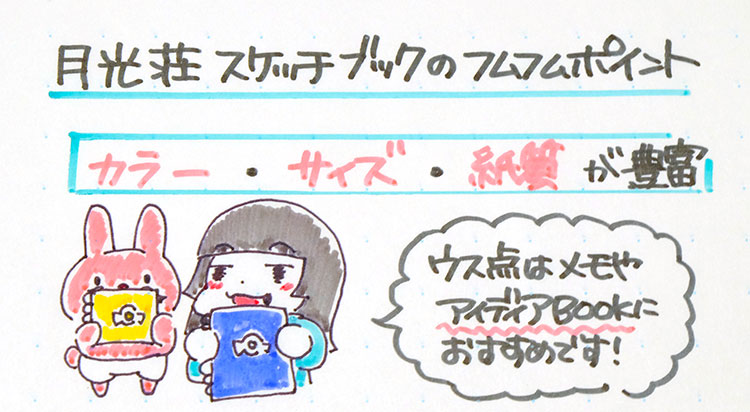 月光荘スケッチブックのフムフムポイント
カラー・サイズ・紙質が豊富
ウス点はメモや
アイディアBOOKに
おすすめです!